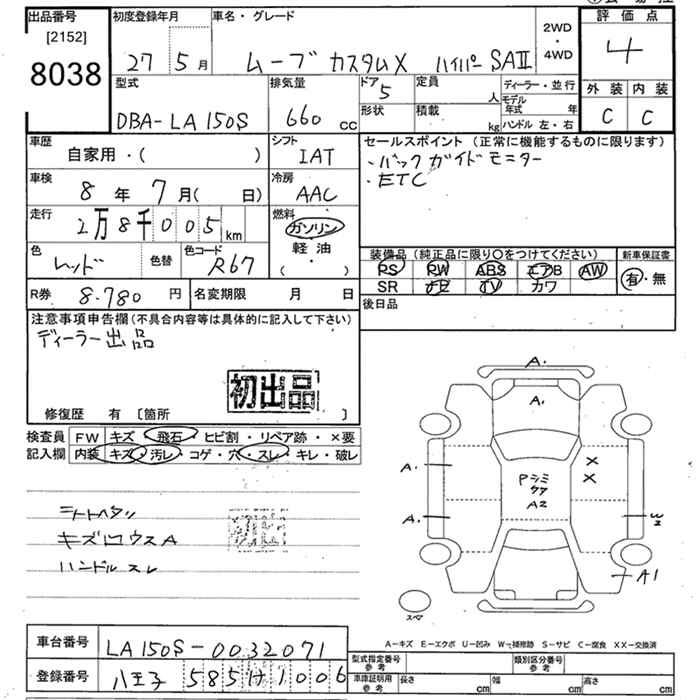 出品番号
[2152]
8038
初度登録年月
27 5月
車名・グレード
ムーブ カスタムX ハイパーSAⅡ
2WD
・
4WD
評価点
4
外装 内装
C C
型式
DBA-LA150S
排気量
660 cc
ドア
5
形状
定員
人
積載
kg
ディーラー・並行
モデル年式 年
ハンドル 左・右
車歴
自家用・( )
シフト
IAT
車検
8年 7月( 日)
冷房
AAC
走行
2万8千005km
燃料
ガソリン
軽油
( ・ )
色
レッド
色替
色コード
R67
R券 8.780円
名変期限 月 日
セールスポイント(正常に機能するものに限ります)
・バックガイドモニター
・ETC
装備品(純正品に限り○をつけてください)
新車保証書
PS PW ABS エアB AW
有・無
SR ナビ TV カワ
後日品
注意事項申告欄(不具合内容等は具体的に記入して下さい)
ディーラー出品
初出品
修復歴 有 [箇所 ]
検査員記入欄
FW キズ・飛石・ヒビ割・リペア跡・×要
内装 キズ・汚レ・コゲ・穴・スレ・キレ・破レ
シートヘタリ
ハンドルスレ
A.
A.
A.
A.
A2
×
×
W2
A1
スペア
A-キズ E-エクボ U-凹み W-補修跡 S-サビ C-腐食 XX-交換済
車台番号 LA150S-0032071
登録番号 八王子 585 け 1006
型式指定番号 参考
類別区分番号 参考
車庫証明用 参考
長さ cm
幅 cm
高さ cm